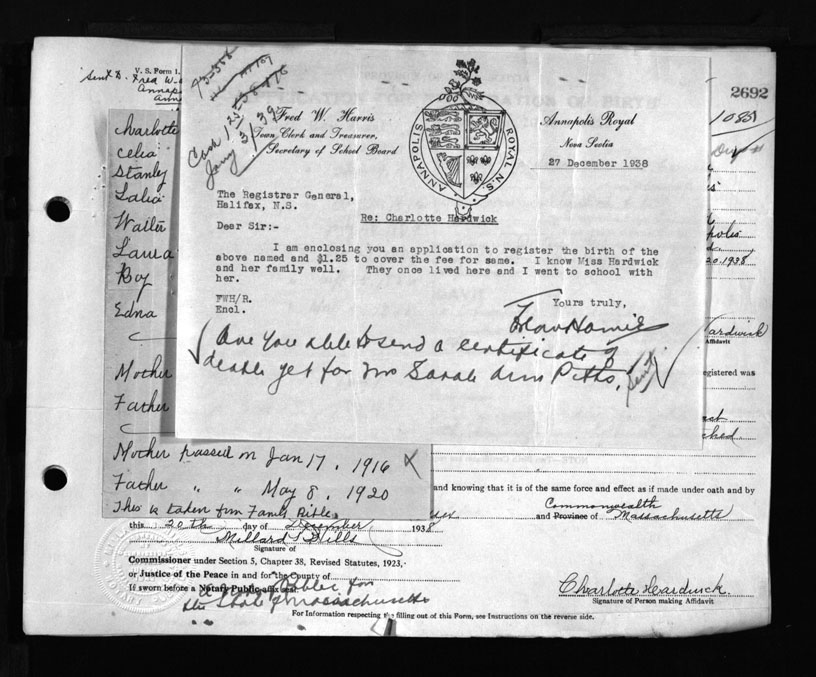 V. S. Form 1.
Sent to Fred W.
2692
1083
Charlotte
Celia
Stanley
Walter
Laura
Boy
Edna
Mother
Father
Mother passed on Jan 17, 1916 X
Father " " May 8, 1920
This is taken from Family Bible
Cash 1.25
Jany 3/39
Fred W. Harris
Town Clerk and Treasurer,
Secretary of School Board
ANNAPOLIS ROYAL N.S.
Annapolis Royal
Nova Scotia
27 December 1938
The Registrar General,
Halifax, N.S.
Re: Charlotte Hardwick
Dear Sir:-
I am enclosing you an application to register the birth of the
above named and $1.25 to cover the fee for same. I know Miss Hardwick
and her family well. They once lived here and I went to school with
her.
Yours truly,
FWH/R.
Encl.
Are you able to send a certificate of
death yet for Mrs Sarah Ann Pitts.
Sent
20.1938
Hardwick
Affidavit
registered was
and knowing that it is of the same force and effect as if made under oath and by
Commonwealth
and Province of Massachusetts
this 20th day of December 1938
Millard S Hills
Signature of
Commissioner under Section 5, Chapter 38, Revised Statutes, 1923,
or Justice of the Peace in and for the County of
If sworn before a Notary Public affix seal
the State of Massachusetts
Charlotte Hardwick
Signature of Person making Affidavit
For Information respecting the filling out of this Form, see Instructions on the reverse side.